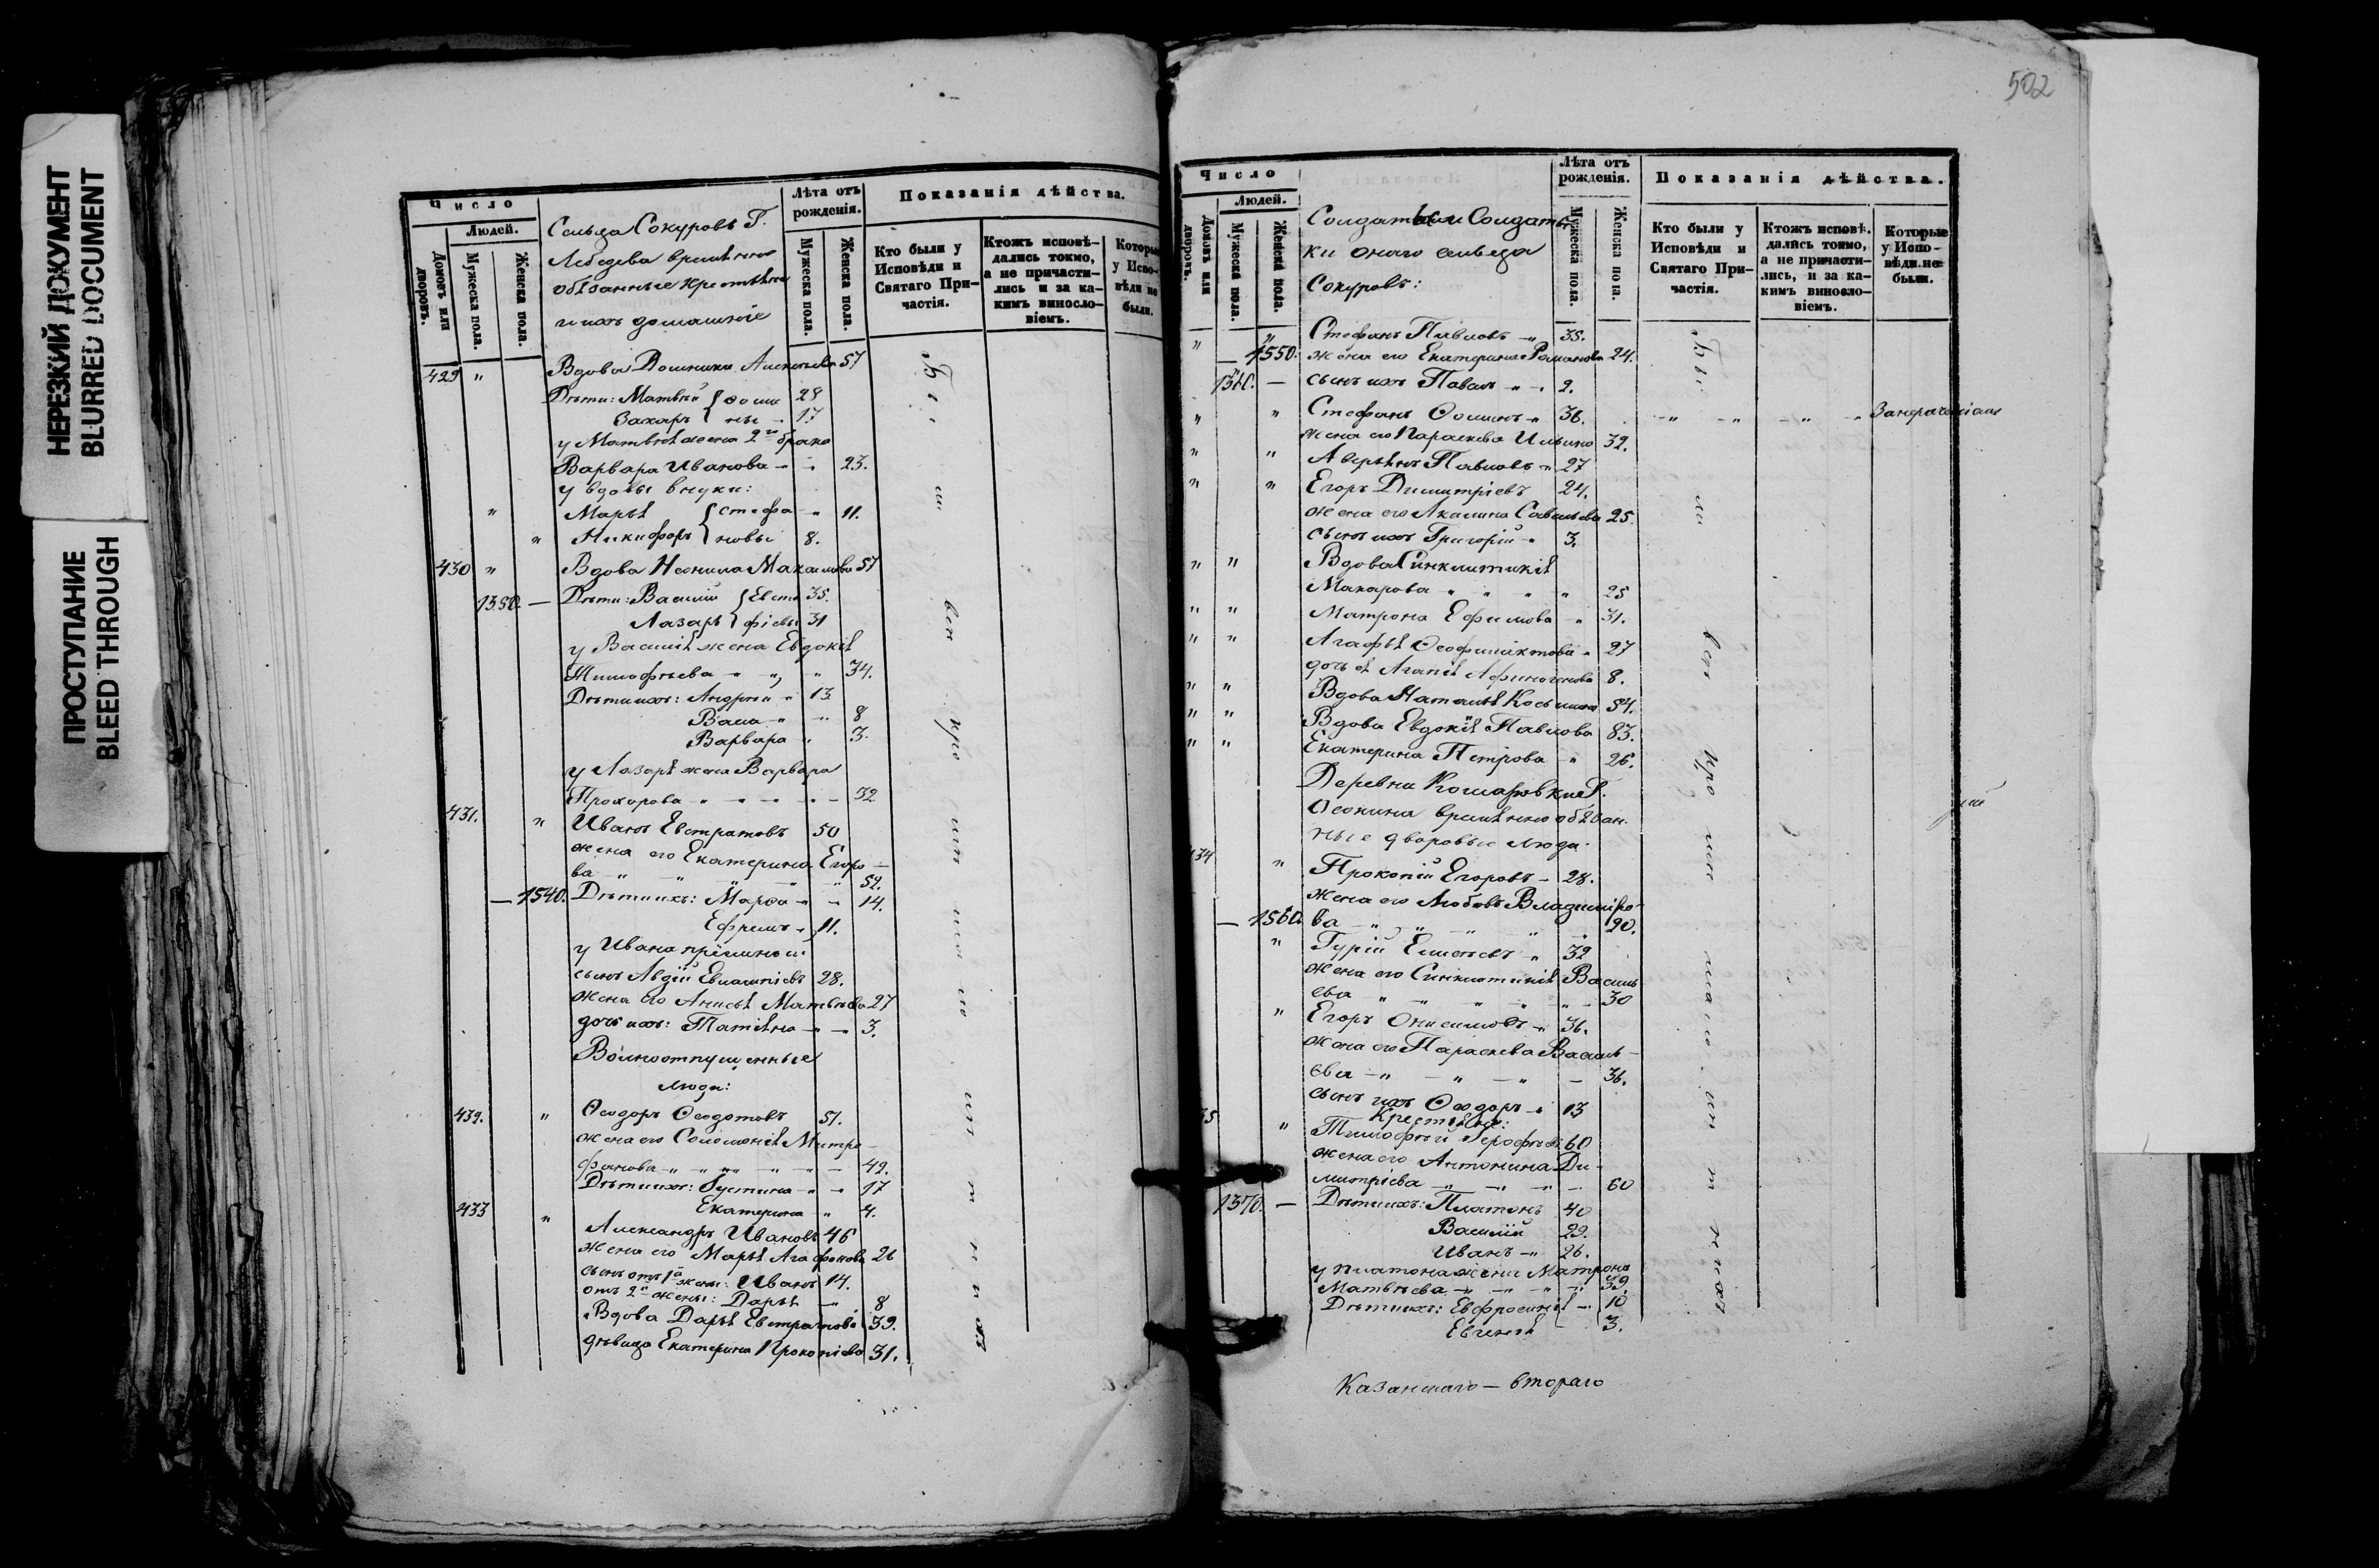 НЕРЕЗКИЙ ДОКУМЕНТ
BLURRED DOCUMENT
ПРОСТУПАНИЕ
BLEED THROUGH
Число
Людей.
Домовъ или дворовъ.
Мужеска пола.
Женска пола.
Сельца Сокуровъ Г.
Лебедева временно
обязанные крестьяне
и ихъ домашніе
Лѣта отъ рожденія.
Мужеска пола.
Женска пола.
Показанія дѣйства.
Кто были у Исповѣди и Святаго Причастія.
Ктожъ исповѣдались токмо, а не причастились и за какимъ винословіемъ.
Которые у Исповѣди не были.
429 " Вдова Домника Алексѣева 57
Дѣти: Матвѣй 28
Захаръ 17.
у Матвѣя жена 2го брака
Варвара Иванова - - 23.
у вдовы внуки:
" Марья } Стефа - " 11.
" Никифоръ } новы 8.
430 " Вдова Неонила Максимова 57
1350. — Дѣти: Василій } Евста 35.
Лазарь } фіевы 31
у Василія жена Евдокія
Тимофѣева - " " 34.
Дѣти ихъ: Андрей " 13
Васса - " - 8
Варвара " 3.
у Лазаря жена Варвара
Прохорова - - - - - 32
431. " Иванъ Евстратовъ 50
жена его Екатерина Егоро-
ва - " - " - " - " 52.
— 1540. Дѣти ихъ: Марфа - - 14.
Ефремъ - 11.
у Ивана пріемной
сынъ Авдій Евлампіевъ 28.
жена его Анисья Матвѣева 27
дочь ихъ: Татіяна - - 3.
Вольноотпущенные
люди:
432. " Ѳеодоръ Ѳеодотовъ 51.
жена его Соломонія Митро-
фанова - " - " - " - 49.
Дѣти ихъ: Іустина - - 17
Екатерина " 4.
433 " Александръ Ивановъ 46
жена его Марья Агафонова 26
сынъ отъ 1й жены: Иванъ 14.
отъ 2й жены: Дарья - 8
Вдова Дарья Евстратова 39.
дѣвица Екатерина Прокопіева 31.
Бы ли вси
502
Число
Людей.
Домовъ или дворовъ.
Мужеска пола.
Женска пола.
Солдаты и Солдат-
ки онаго сельца
Сокуровъ:
Лѣта отъ рожденія.
Мужеска пола.
Женска пола.
Показанія дѣйства.
Кто были у Исповѣди и Святаго Причастія.
Ктожъ исповѣдались токмо, а не причастились, и за какимъ винословіемъ.
Которые у Исповѣди не были.
" " Стефанъ Павловъ - " 35.
— 1550. жена его Екатерина Романова 24.
1360. — сынъ ихъ Павелъ " - 2.
" " Стефанъ Ѳоминъ - " 36. - " - " - " - "
жена его Параскева Ильина 32.
" " Аверьянъ Павловъ - " 27
" " Егоръ Димитріевъ 24.
жена его Акилина Савельева 25.
сынъ ихъ Григорій " 3.
" " Вдова Синклитикія
Макарова " " " " 25
" " Матрона Ефимова - " 31.
" " Агафья Ѳеофилактова - 27
дочь ея Агапія Афиногенова 8.
" " Вдова Наталья Косьмина 54.
" " Вдова Евдокія Павлова 83.
" " Екатерина Петрова - " 26.
Деревни Комаровки Г.
Осокина временнообязан-
ные дворовые люди.
434 " Прокопій Егоровъ - 28.
жена его Любовь Владиміро-
— 1560. ва - " - " - " - 20.
" Гурій Елисѣевъ " 32
жена его Синклитикія Василь
ева " - " - " - " - 30
" Егоръ Онисимовъ - " 36.
жена его Параскева Василь-
ева - " - " - " - 36.
сынъ ихъ Ѳеодоръ - " 13
Крестьяне:
35 " Тимофѣй Іерофѣевъ 60
жена его Антонина Ди-
митріева - " - " - " - 60
1370. — Дѣти ихъ: Платонъ 40
Василій 29.
Иванъ - " 26.
у Платона жена Матрона
Матвѣева - " - " - " 39.
Дѣти ихъ: Евфросинія - 10
Евгенія - 3.
Бы ли вси
Казанскаго — втораго